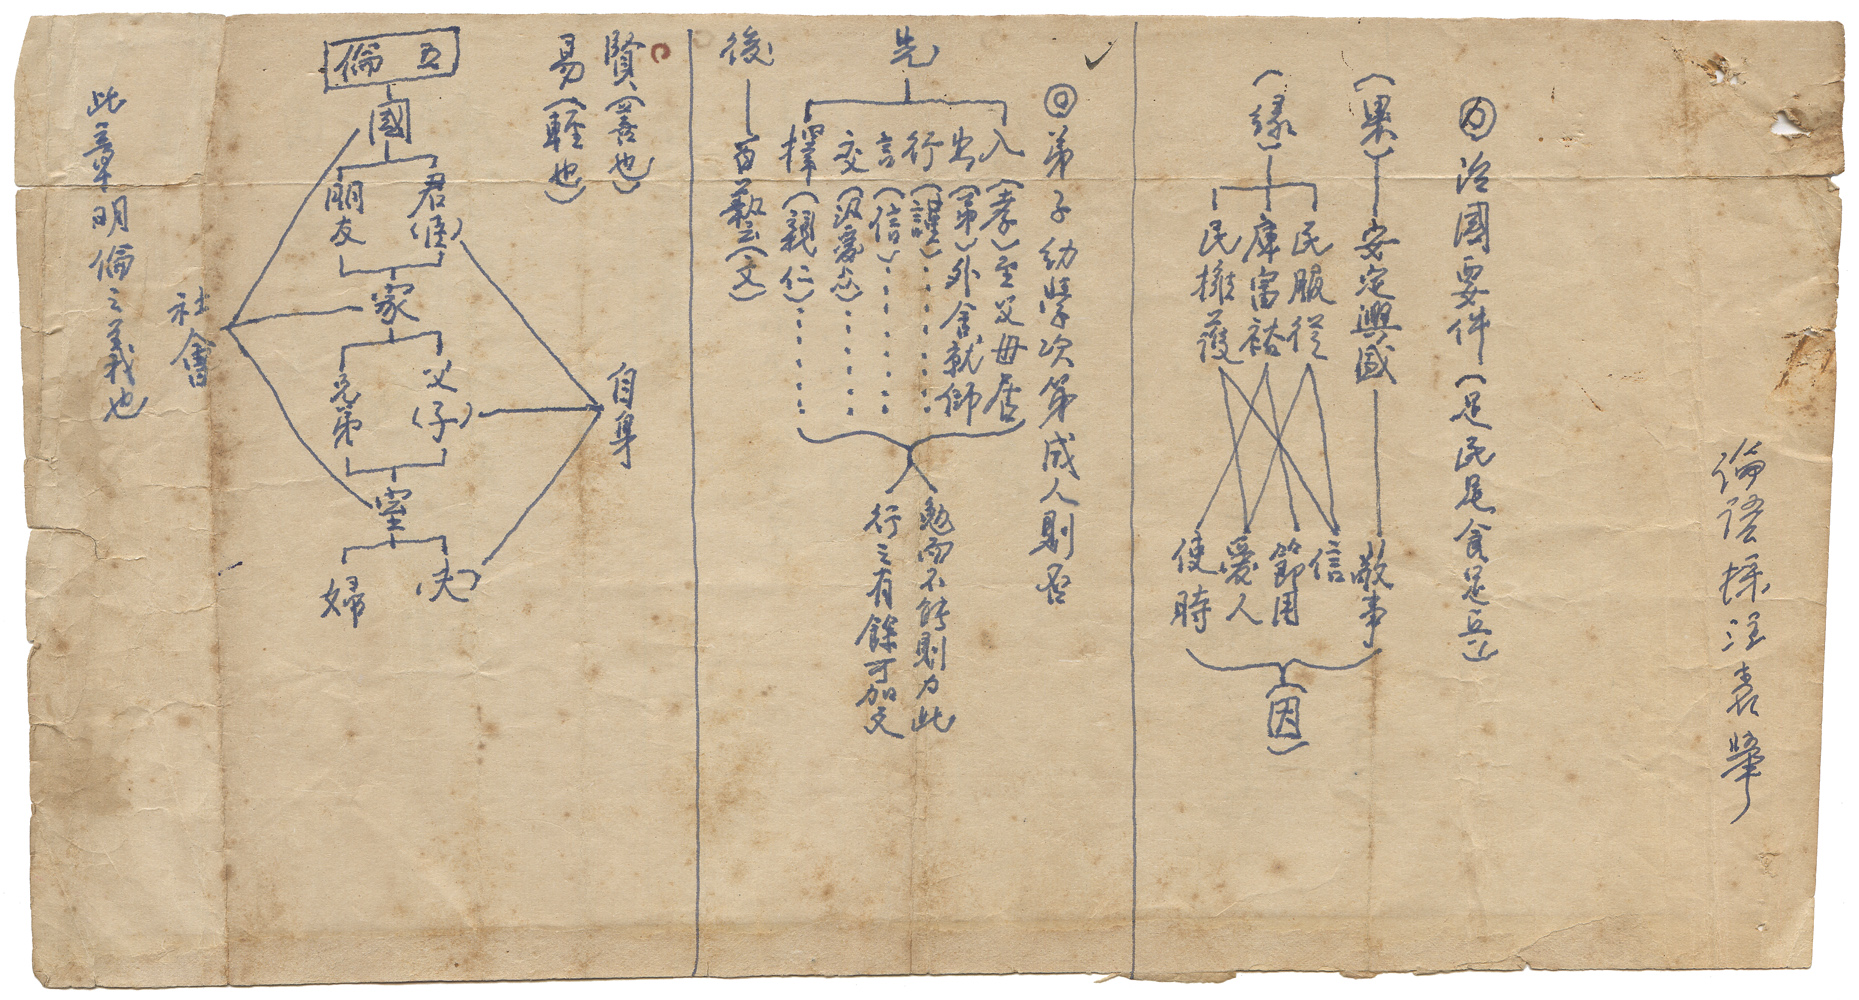 論語採注表準
㊄治國要件（足民足食足兵）
（果）安定興盛 敬事
（緣）
民服從 信
庫富裕 節用
民擁護 愛人
使時
（因）
◎弟子幼學次第成人則否
先
入（孝）在父母居
出（弟）外舍就師
行（謹）……
言（信）……
交（汎愛眾）……
擇（親仁）……
勉而不能則力此
行之有餘可加文
後
百藝（文）
賢（善也）
易（輕也）
自身
五倫
國
君（臣）
朋友
家
父（子）
兄弟
室
（夫）
婦
社會
此章明倫之義也